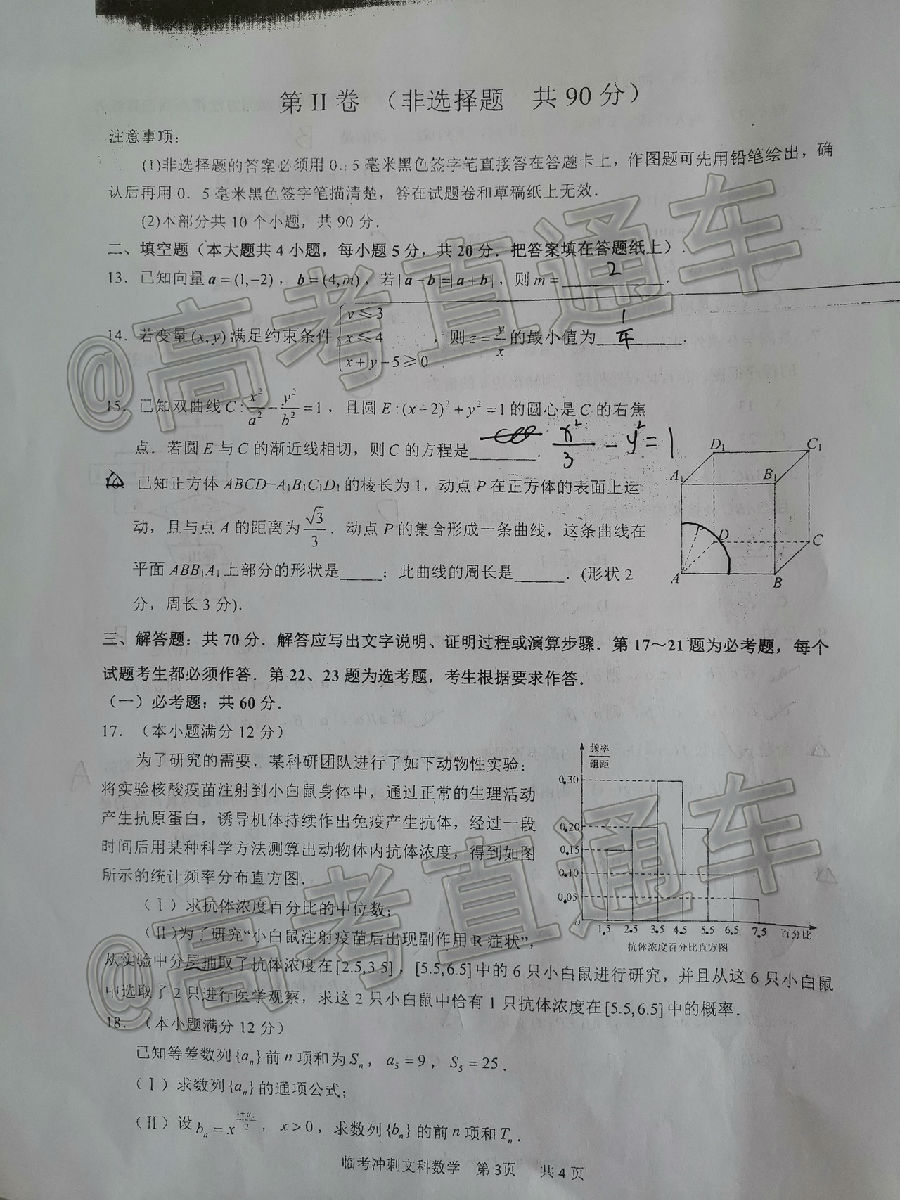 第 II 卷 （非选择题 共 90 分）
注意事项：
(1)非选择题的答案必须用 0．5 毫米黑色签字笔直接答在答题卡上，作图题可先用铅笔绘出，确
认后再用 0．5 毫米黑色签字笔描清楚，答在试题卷和草稿纸上无效．
(2)本部分共 10 个小题，共 90 分．
二、填空题（本大题共 4 小题，每小题 5 分，共 20 分．把答案填在答题纸上）．
13．已知向量 a = (1,−2)，b = (4,m)，若|a − b|=|a + b|，则 m = 2 ．
14．若变量 (x, y) 满足约束条件 { y ≤ 3
x ≤ 4 ，则 z = y/x 的最小值为 1/4 ．
x + y − 5 ≥ 0
15．已知双曲线 C : x²/a² − y²/b² = 1，且圆 E : (x−2)² + y² = 1 的圆心是 C 的右焦
点．若圆 E 与 C 的渐近线相切，则 C 的方程是 ． x²/3 − y² = 1
已知正方体 ABCD−A₁B₁C₁D₁ 的棱长为 1，动点 P 在正方体的表面上运
动，且与点 A 的距离为 √3/3．动点 P 的集合形成一条曲线，这条曲线在
平面 ABB₁A₁ 上部分的形状是_____；此曲线的周长是______．(形状 2
分，周长 3 分)．
D₁ C₁
A₁ B₁
D C
A B
三、解答题：共 70 分．解答应写出文字说明、证明过程或演算步骤．第 17～21 题为必考题，每个
试题考生都必须作答．第 22、23 题为选考题，考生根据要求作答．
（一）必考题：共 60 分．
17．（本小题满分 12 分）
为了研究的需要，某科研团队进行了如下动物性实验：
将实验核酸疫苗注射到小白鼠身体中，通过正常的生理活动
产生抗原蛋白，诱导机体持续作出免疫产生抗体，经过一段
时间后用某种科学方法测算出动物体内抗体浓度，得到如图
所示的统计频率分布直方图．
频率
组距
0.30
0.20
0.15
0.10
0.05
0 1.5 2.5 3.5 4.5 5.5 6.5 7.5 百分比
抗体浓度百分比直方图
（Ⅰ）求抗体浓度百分比的中位数；
（Ⅱ）为了研究“小白鼠注射疫苗后出现副作用 R 症状”，
从实验中分层抽取了抗体浓度在 [2.5,3.5]，[5.5,6.5] 中的 6 只小白鼠进行研究，并且从这 6 只小白鼠
中选取了 2 只进行医学观察，求这 2 只小白鼠中恰有 1 只抗体浓度在 [5.5,6.5] 中的概率．
18．（本小题满分 12 分）
已知等差数列 {aₙ} 前 n 项和为 Sₙ，a₅ = 9，S₅ = 25．
（Ⅰ）求数列 {aₙ} 的通项公式；
（Ⅱ）设 bₙ = x ，x > 0，求数列 {bₙ} 的前 n 项和 Tₙ．
临考冲刺文科数学 第 3页 共 4 页
@高考直通车
@高考直通车